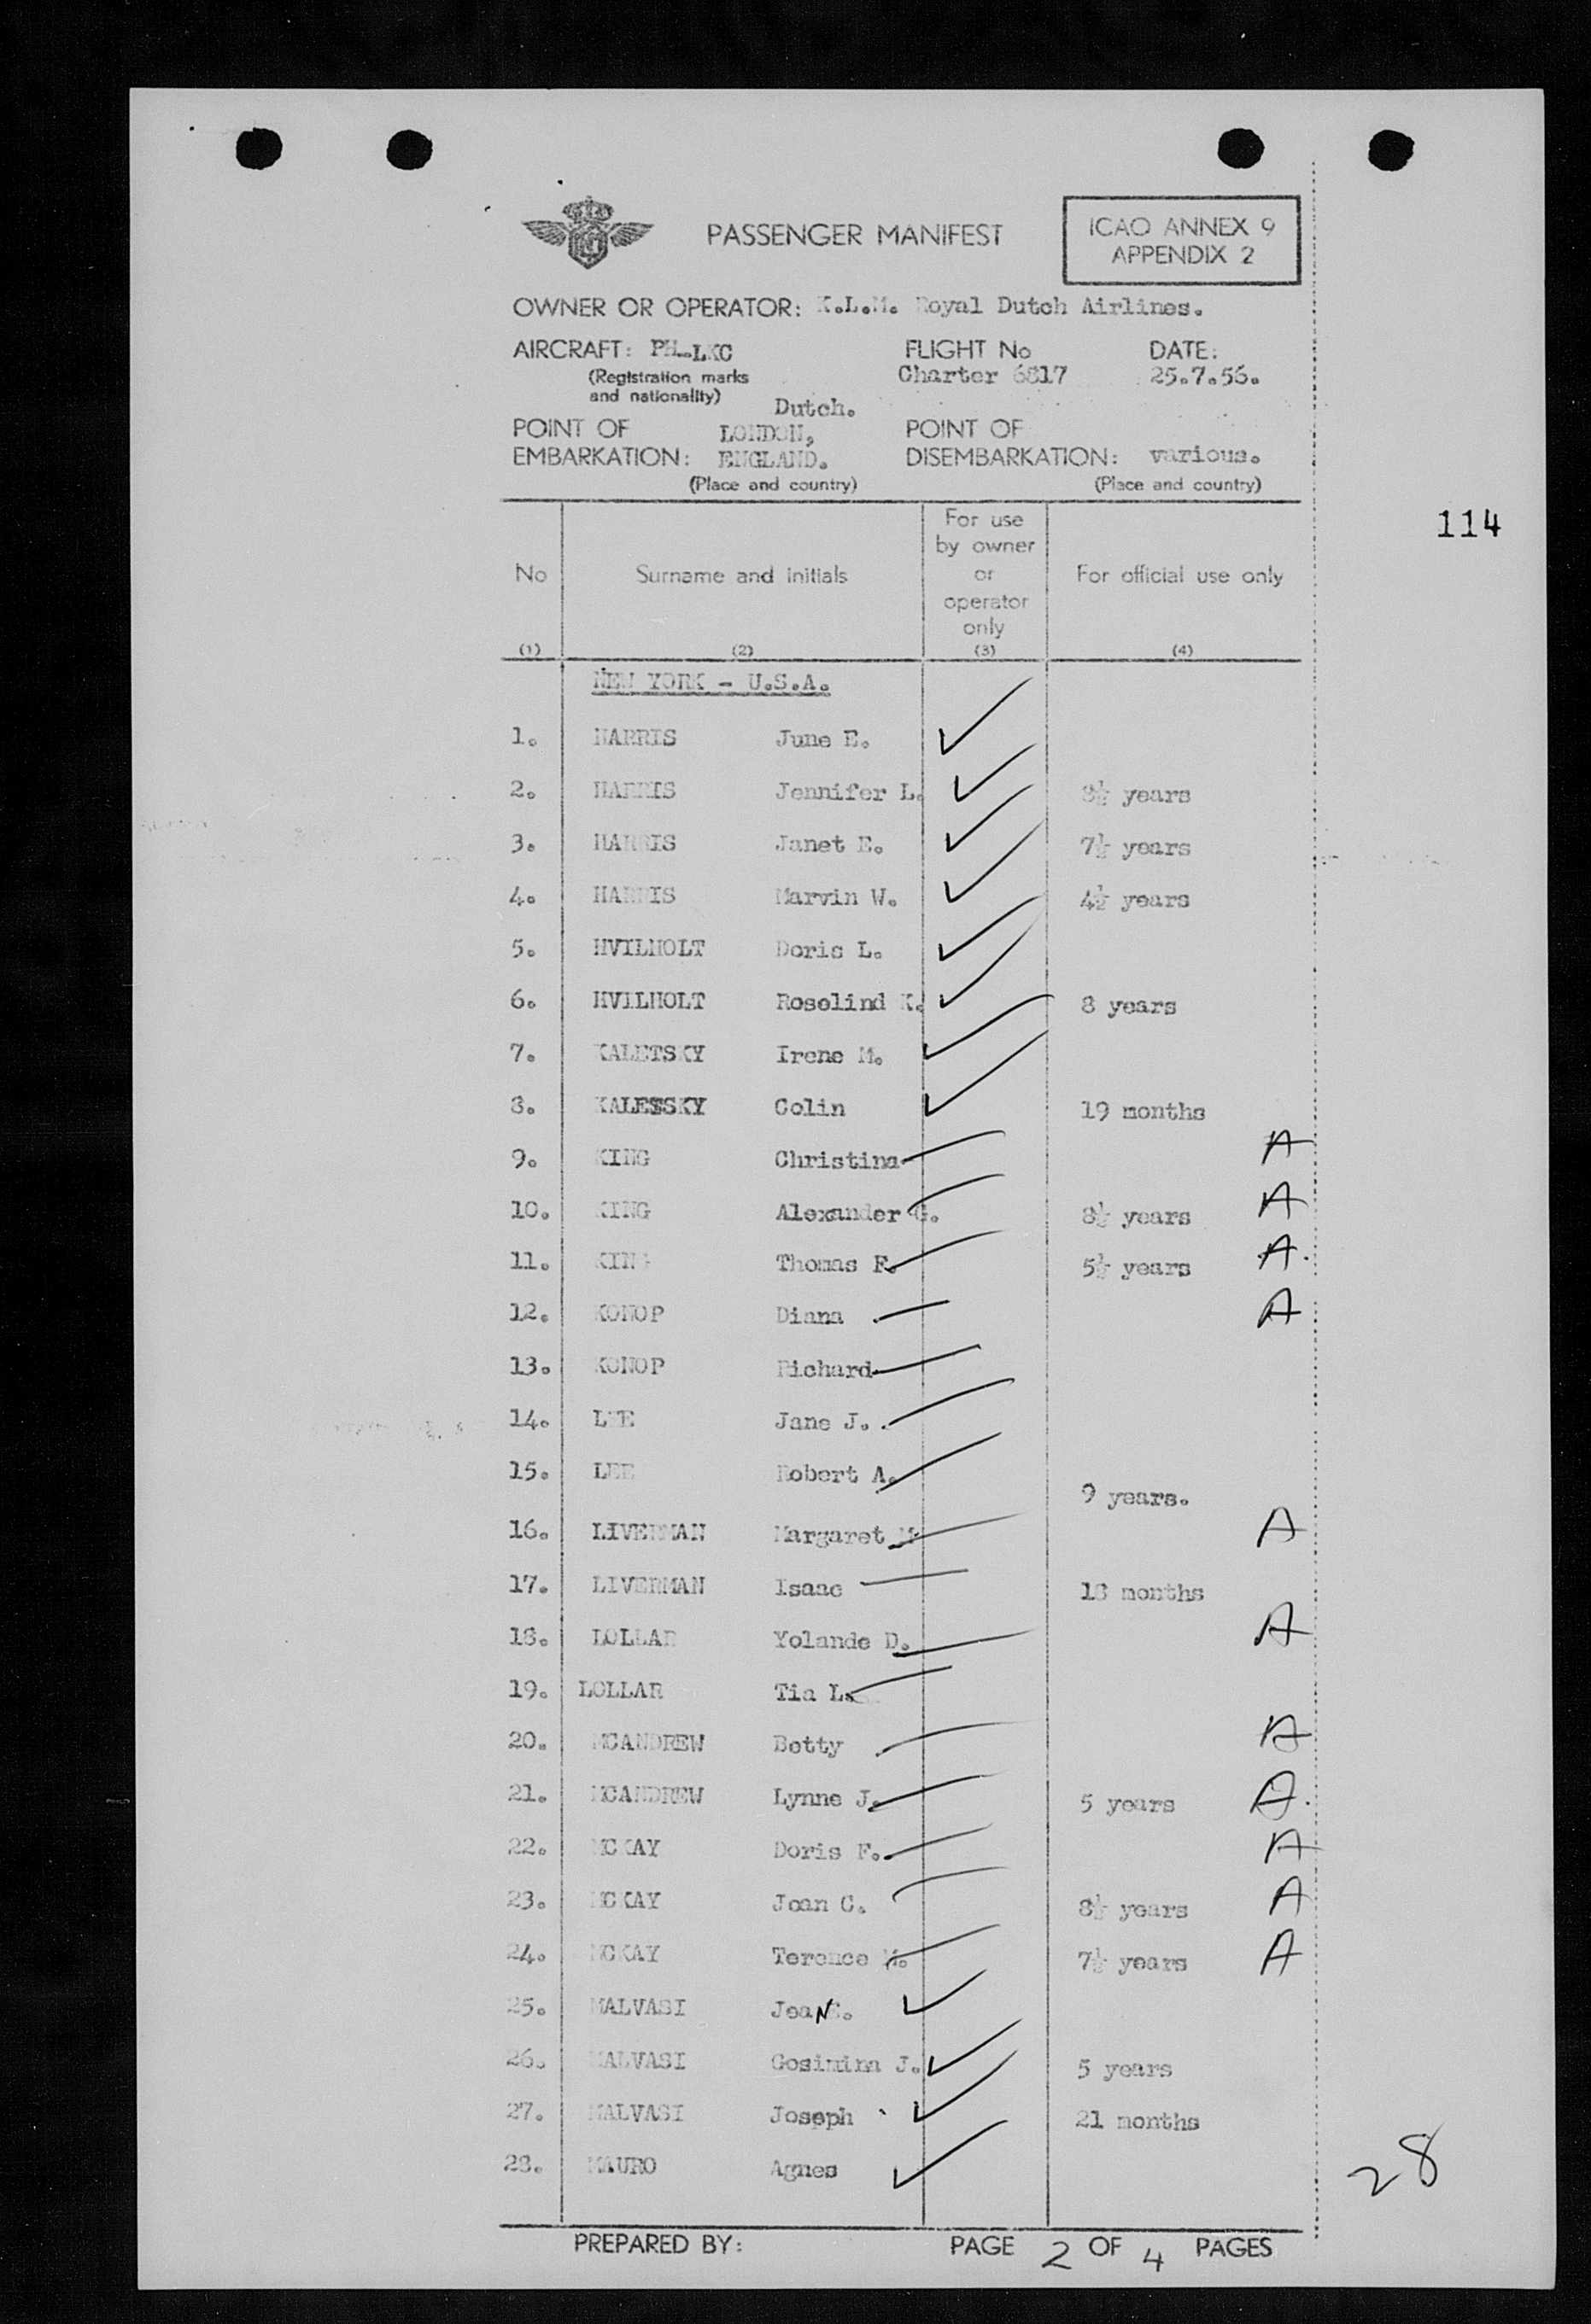 PASSENGER MANIFEST
ICAO ANNEX 9
APPENDIX 2
OWNER OR OPERATOR: K.L.M. Royal Dutch Airlines.
AIRCRAFT: PH-LKC
FLIGHT No
DATE:
(Registration marks
and nationality)
Charter 6817
25.7.56.
Dutch.
POINT OF
EMBARKATION:
LONDON,
ENGLAND.
POINT OF
DISEMBARKATION: various.
(Place and country)
(Place and country)
114
No
Surname and initials
For use
by owner
or
operator
only
For official use only
(1) (2) (3) (4)
NEW YORK - U.S.A.
1. HARRIS June E.
2. HARRIS Jennifer L. 8½ years
3. HARRIS Janet E. 7½ years
4. HARRIS Marvin W. 4½ years
5. HVILHOLT Doris L.
6. HVILHOLT Roselind K. 8 years
7. KALETSKY Irene M.
8. KALETSKY Colin 19 months
9. KING Christina A
10. KING Alexander G. 8½ years A
11. KING Thomas F. 5½ years A.
12. KONOP Diana A
13. KONOP Richard
14. LEE Jane J.
15. LEE Robert A.
9 years.
16. LIVERMAN Margaret M A
17. LIVERMAN Isaac 18 months
18. LOLLAR Yolande D. A
19. LOLLAR Tia L.
20. MCANDREW Betty A
21. MCANDREW Lynne J. 5 years A.
22. MCKAY Doris F. A
23. MCKAY Joan C. 8½ years A
24. MCKAY Terence M. 7½ years A
25. MALVASI Jean
26. MALVASI Gosimina J. 5 years
27. MALVASI Joseph 21 months
28. MAURO Agnes
28
PREPARED BY:
PAGE 2 OF 4 PAGES